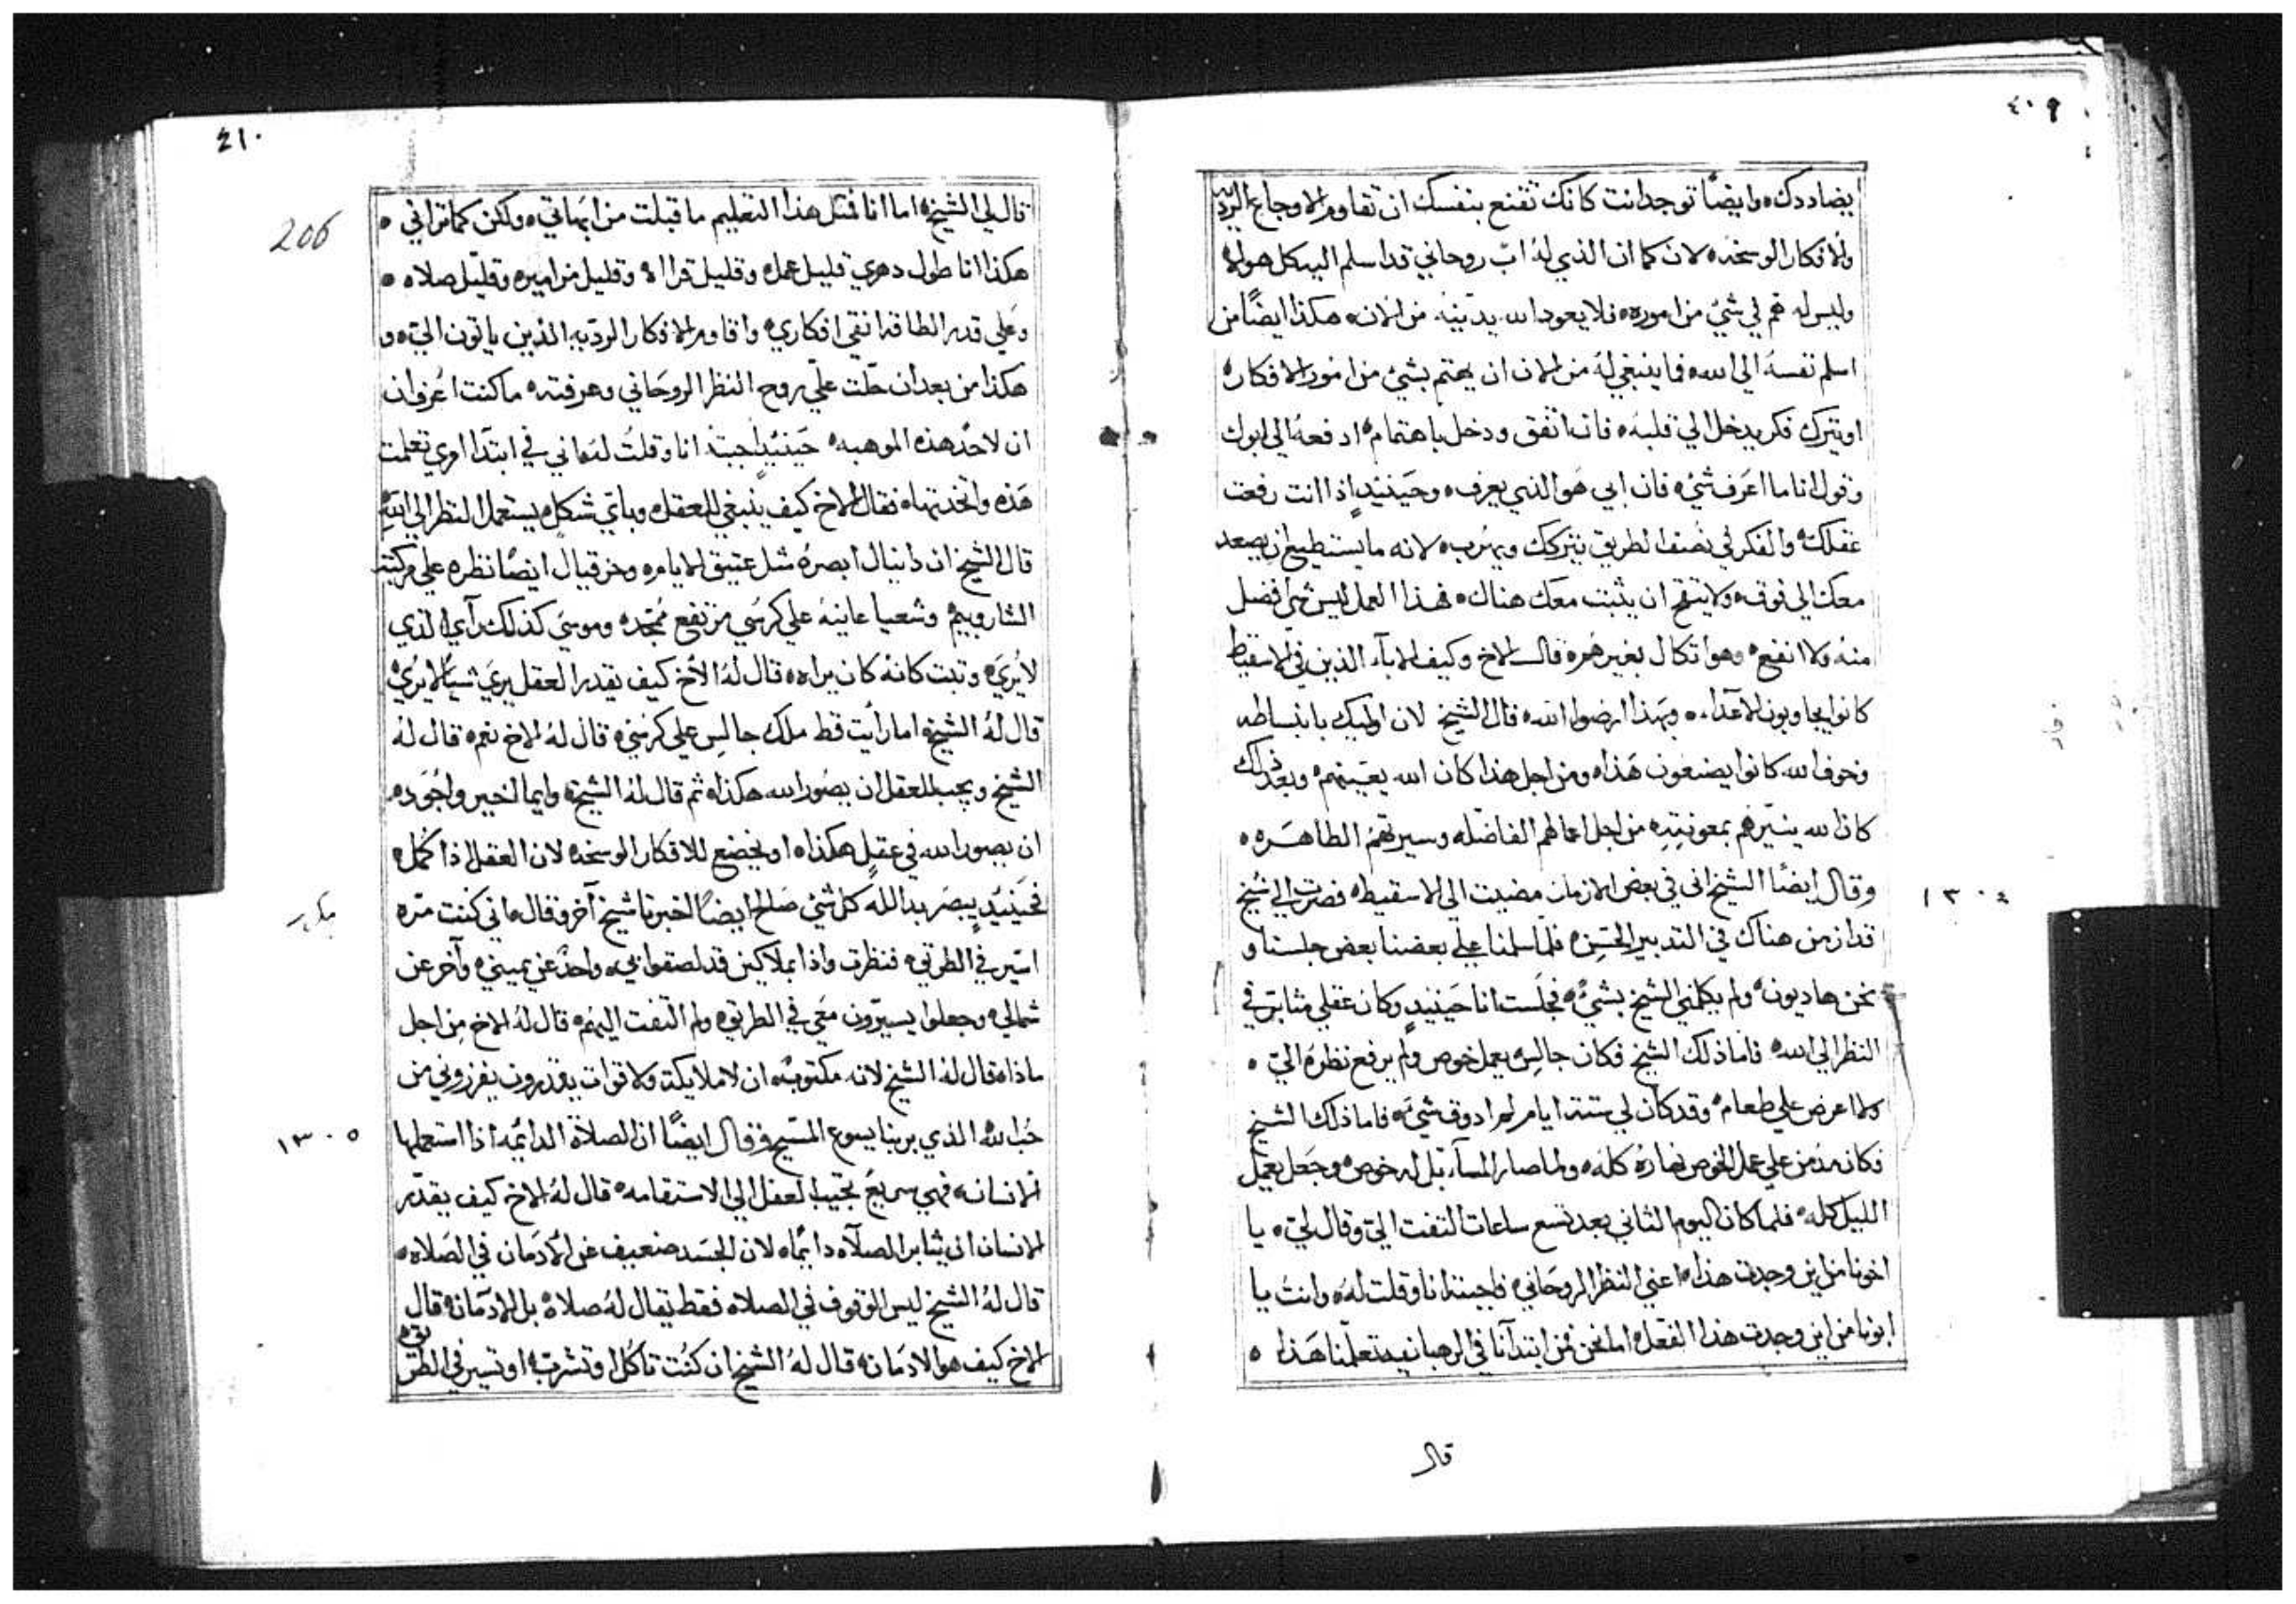 ٤٠٩
يضاددك، وايضًا توجد انت كانك تقنع بنفسك ان تقاوم الاوجاع الرديه
والافكار الوسخه، لان كما ان الذي له ابّ روحاني قد اسلم اليه كل هواه
وليس له هم في شيٍ من اموره، فلا يعود الله يدينه من الان، هكذا ايضًا من
اسلم نفسه الى الله، فما ينبغي له من الان ان يهتم بشيء من امور الافكار،
او يترك فكر يدخل الي قلبه، فان اتفق ودخل باهتمام، ادفعه الي ابوك
وقول انا ما اعرف شيء، فان ابي هو الذي يعرف، وحينيذٍ اذا انت رفعت
عقلك، والفكر في نصف الطريق يتركك ويهرب، لانه ما يستطيع ان يصعد
معك الي فوق، ولا يتقح ان يثبت معك هناك، فهذا العمل ليس شي افضل
منه ولا انفع، وهو اتكال بغير هم، قال الاخ وكيف الابآء الذين في الاسقيط
كانوا يجاوبون الاعداء، وبهذا ارضوا الله، قال الشيخ لان اوليك بانبساطه
وخوف الله كانوا يصنعون هذا، ومن اجل هذا كان الله يعينهم، وبعد ذلك
كان الله ينيّرهم بمعونيته من اجل اعمالهم الفاضله وسيرتهم الطاهره،
وقال ايضًا الشيخ اني في بعض الازمان مضيت الي الاسقيط، فصرت الي شيخ
١٣٠٤
قد ازمن هناك في التدبير الحسن، فلما سلمنا علي بعضنا بعض جلسنا و
نحن هاديون، ولم يكلمني الشيخ بشيءٍ، فجلست انا حينيذٍ وكان عقلي مثابر في
النظر الي الله، فاما ذلك الشيخ فكان جالس يعمل خوص ولم يرفع نظره اليّ،
ولا عرض علي طعام، وقد كان لي ستة ايام لم ادوق شي، فاما ذلك الشيخ
فكان مدمن علي عمل الخوص نهاره كله، ولما صار المسآء بّل له خوص، وجعل يعمل
الليل كله، فلما كان اليوم الثاني بعد تسع ساعات التفت اليّ وقال لي، يا
اخونا من اين وجدت هذا، اعني النظر الروحاني، فاجبته انا وقلت له، وانت يا
ابونا من اين وجدت هذا الفعل، اما نحن فمن ابتدآنا في الرهبانيه تعلمنا هذا،
قال
٤١٠
206
قال لي الشيخ، اما انا فمثل هذا التعليم ما قبلت من ابهاتي، ولكن كما تراني،
هكذا انا طول دهري قليل عمل، وقليل قراه، وقليل مزامير، وقليل صلاه،
وعلي قدر الطاقه انقي افكاري، واقاوم الافكار الرديه الذين ياتون اليّ، و
هكذا من بعد ان حلّت عليّ روح النظر الروحاني وعرفته، ما كنت اعرف ان
ان لاحد هذه الموهبه، حينيذٍ اجبته انا وقلت له، اني في ابتدآ امري تعلمت
هذه واتخدتها، فقال الاخ كيف ينبغي للعقل، وباي شكل، يستعمل النظر الي الله
قال الشيخ ان دانيال ابصره مثل عتيق الايام، وحزقيال ايضًا نظره علي مركبة
الشاروبيم، وشعيا عاينه علي كرسي مرتفع ممجد، وموسي كذلك رآي الذي
لا يُري، وتبت كانه كان يراه، قال له الاخ كيف يقدر العقل يري شيًا لا يُري
قال له الشيخ، اما رايت قط ملك جالس علي كرسي، قال له الاخ نعم، قال له
الشيخ ويجب للعقل ان يصور الله هكذا، ثم قال له الشيخ، وايما الخير واجود،
ان يصور الله في عقله هكذا، او يخضع للافكار الوسخه، لان العقل اذا كمل،
فحينيذٍ يبصر بدالله كل شيء صلح، ايضًا اخبرنا شيخ آخر وقال، اني كنت مره
اسير في الطريق، فنظرت واذا بملاكين قد لصقوا بي، واحد عن يميني، وآخر عن
شمالي، وجعلوا يسيرون معي في الطريق، ولم التفت اليهم، قال له الاخ من اجل
ماذا، قال له الشيخ لانه مكتوب، ان لا ملايكة ولا قوات يقدرون يفرزوني من
حب الله الذي بربنا يسوع المسيح، وقال ايضًا ان الصلاة الدايمه اذا استعملها
١٣٠٥
الانسان، فهي سريعًا تجيب العقل الي الاستقامه، قال له الاخ كيف يقدر
الانسان ان يثابر الصلاه دايمًا، لان الجسد ضعيف عن الادمان في الصلاه،
قال له الشيخ ليس الوقوف في الصلاه فقط يقال له صلاه، بل الادمان، قال
الاخ كيف هو الادمان، قال له الشيخ ان كنت تاكل، او تشرب، او تسير في الطريق